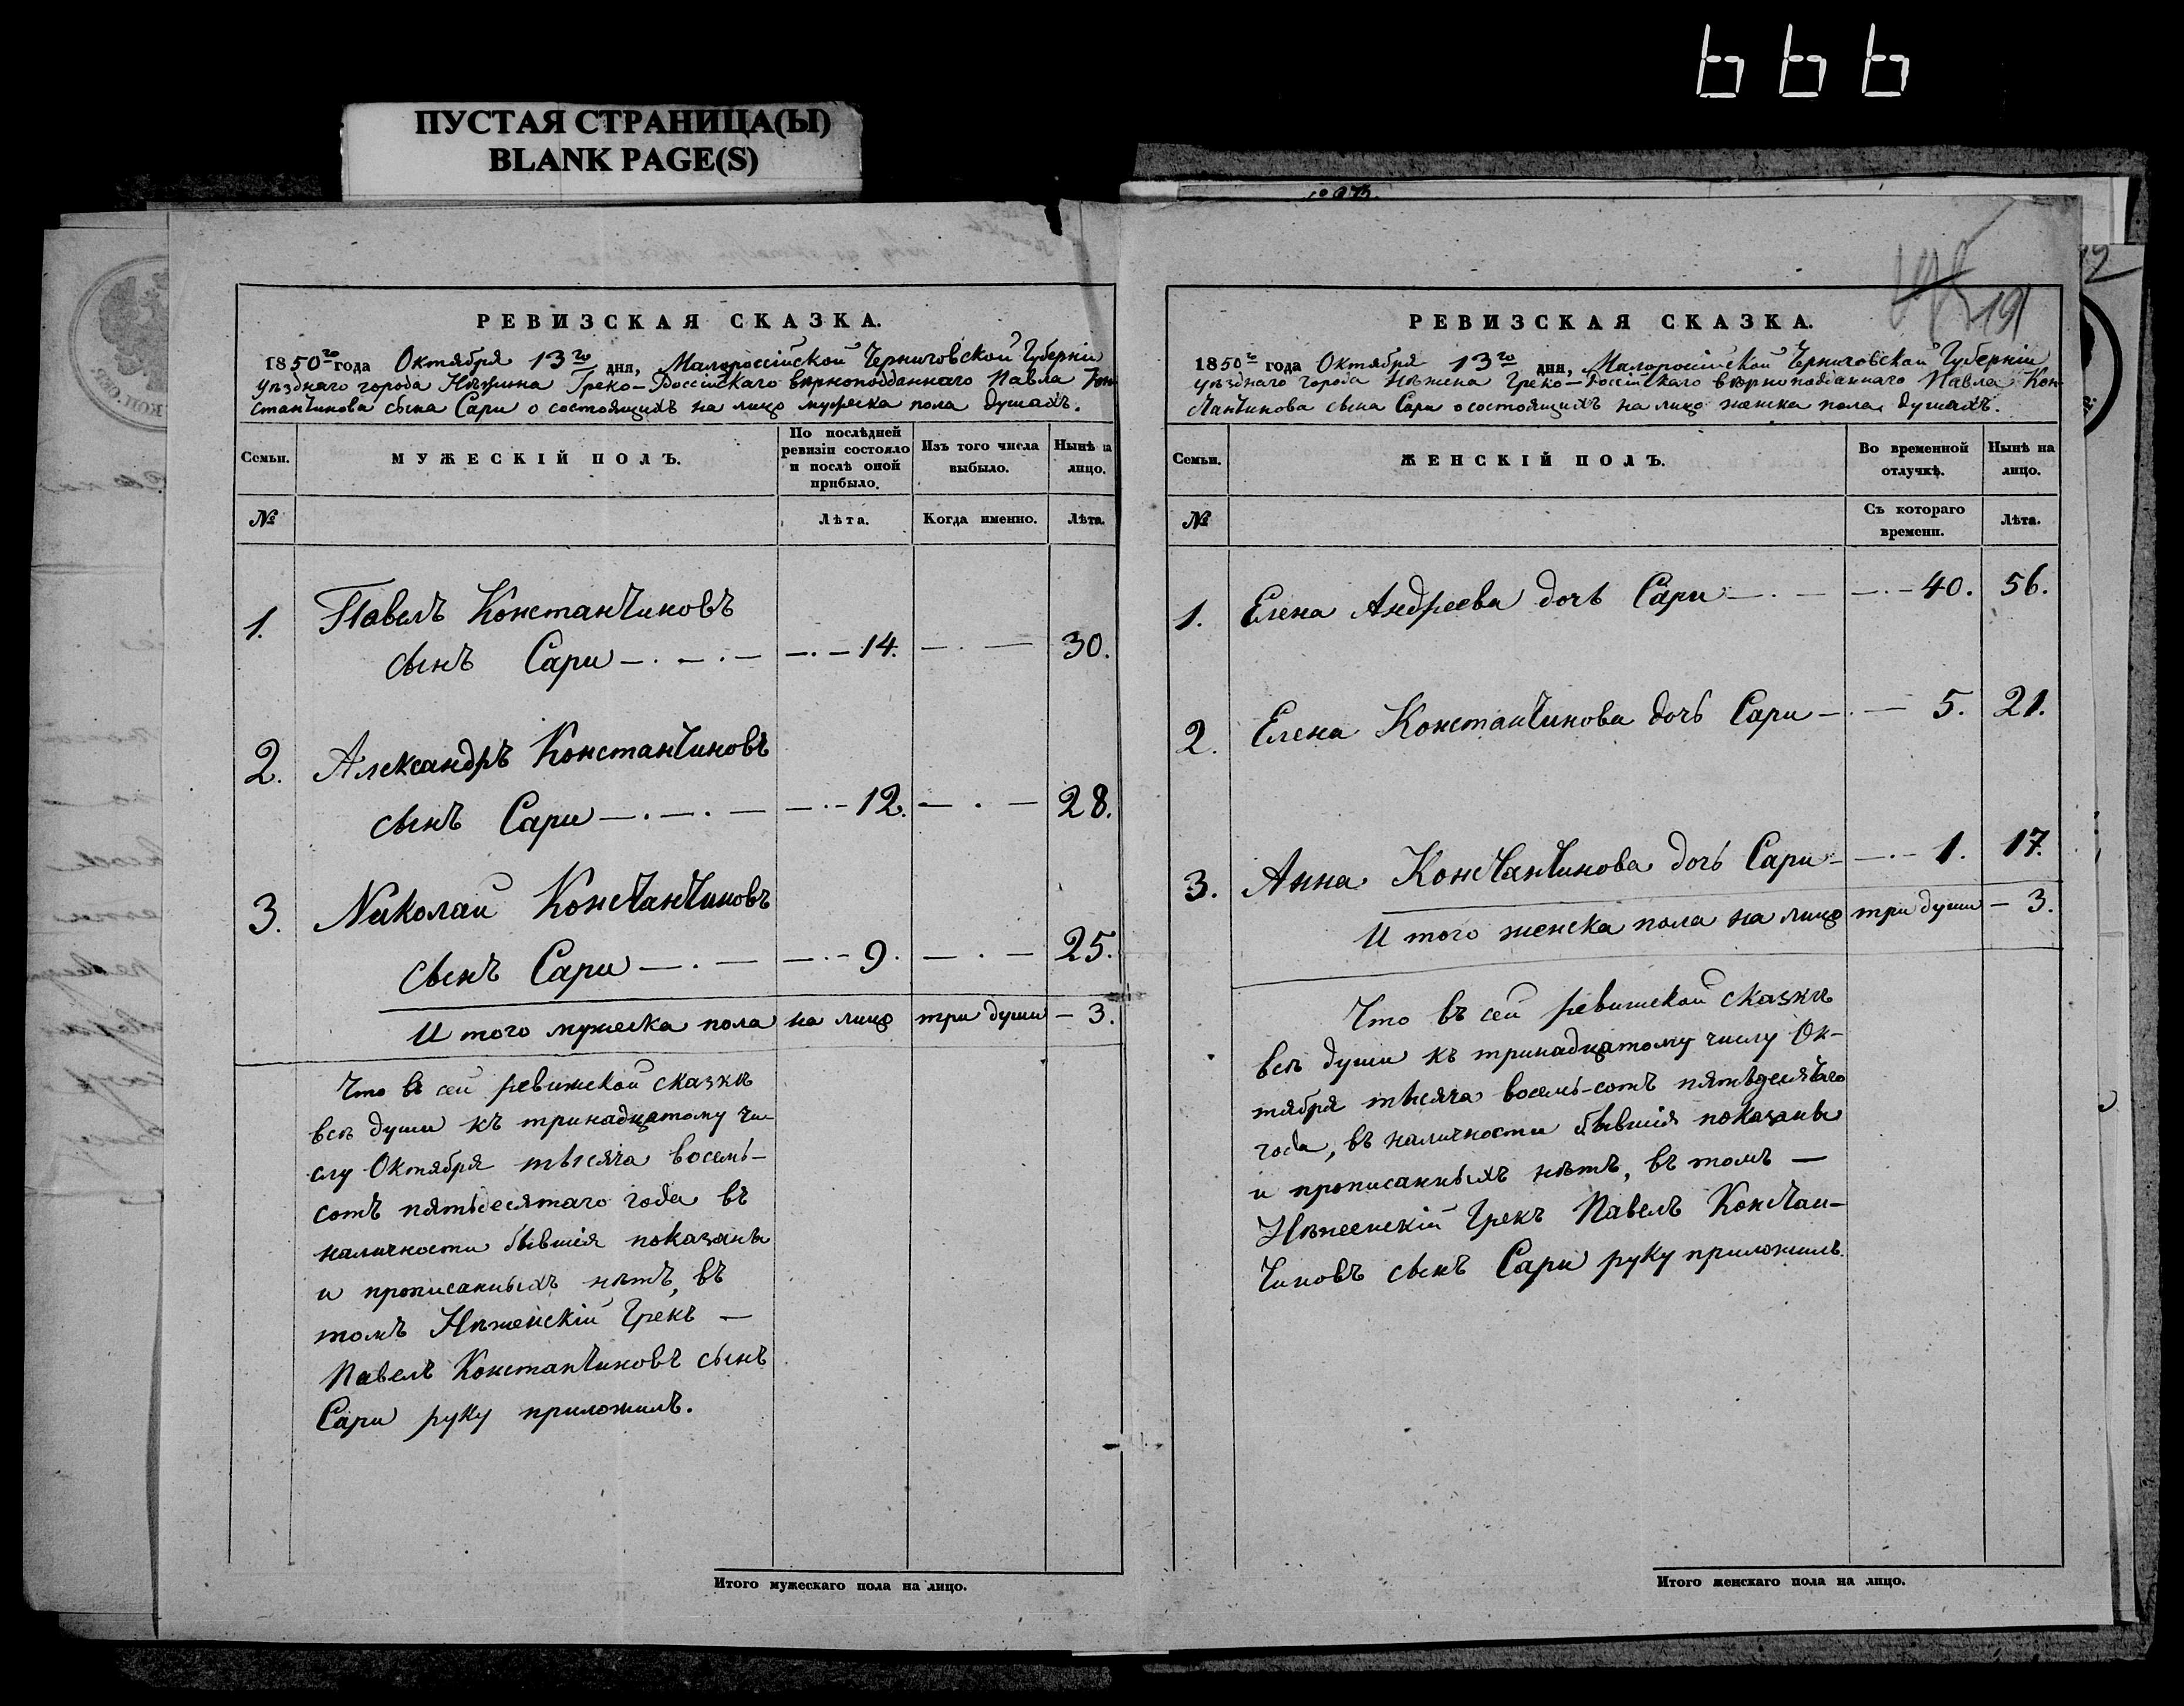 666
ПУСТАЯ СТРАНИЦА(Ы)
BLANK PAGE(S)
РЕВИЗСКАЯ СКАЗКА.
1850го года Октября 13го дня, Малороссійской Черниговской Губерніи
уѣзднаго города Нѣжина Греко-Россійскаго вѣрноподданнаго Павла Кон
стантинова сына Сари о состоящихъ на лицо мужеска пола душахъ.
Семьи.
МУЖЕСКІЙ ПОЛЪ.
По послѣдней ревизіи состояло и послѣ оной прибыло.
Изъ того числа выбыло.
Нынѣ на лицо.
№
Лѣта.
Когда именно.
Лѣта.
1. Павелъ Константиновъ
сынъ Сари — . — . — — . — 14. — . — 30.
2. Александръ Константиновъ
сынъ Сари — . — . — — . — 12. — . — 28.
3. Николай Константиновъ
сынъ Сари — . — — . — 9. — . — 25.
И того мужеска пола на лицо три души — 3.
Что въ сей ревижской сказкѣ
всѣ души къ тринадцатому чи-
слу Октября тысяча восемь-
сотъ пятьдесятаго года въ
наличности бывшія показаны
и прописанныхъ нѣтъ, въ
томъ Нѣженскій Грекъ —
Павелъ Константиновъ сынъ
Сари руку приложилъ.
Итого мужескаго пола на лицо.
191
РЕВИЗСКАЯ СКАЗКА.
1850го года Октября 13го дня, Малоросійской Черниговской Губерніи
уѣзднаго города Нѣжена Греко-Россійскаго вѣрноподданнаго Павла Кон
стантинова сына Сари о состоящихъ на лицо женска пола душахъ.
Семьи.
ЖЕНСКІЙ ПОЛЪ.
Во временной отлучкѣ.
Нынѣ на лицо.
№
Съ котораго времени.
Лѣта.
1. Елена Андреева дочь Сари — . — — . — 40. 56.
2. Елена Константинова дочь Сари — . — 5. 21.
3. Анна Константинова дочь Сари — — . — 1. 17.
И того женска пола на лицо три души — 3.
Что въ сей ревижской сказкѣ
всѣ души къ тринадцатому числу Ок-
тября тысяча восемь-сотъ пятьдесятаго
года, въ наличности бывшія показаны
и прописанныхъ нѣтъ, въ томъ —
Нѣженскій Грекъ Павелъ Констан-
тиновъ сынъ Сари руку приложилъ.
Итого женскаго пола на лицо.